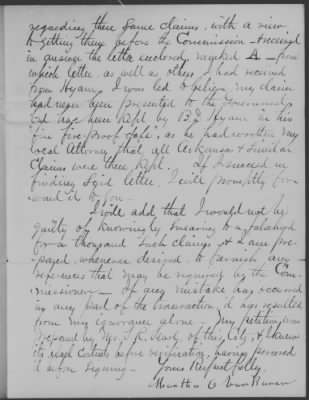 regarding these same claims, with a view
to getting them before the Commission & received
in answer the letter enclosed, marked A — from
which letter, as well as others I had received
from Hyam, I was led to believe my claim
had never been presented to the Government
but had been kept by B.D. Hyam in his
"fire proof safe", as he had written my
local Attorney that, all Arkansas & similar
Claims were there kept. If I succeed in
finding said letter, I will promptly for-
ward it to you.
I will add, that I would not be
guilty of knowingly swearing to a falsehood
for a thousand such claims & I am pre-
pared, whenever desired, to furnish any
references that may be required by the Com-
missioner — If any mistake has occurred
in any part of the transaction, it has resulted
from my ignorance alone — My petition was
prepared by Mr. J.R. of this City, & I knew
its contents before verification, having perused
it before signing — Yours Respectfully
Martha C